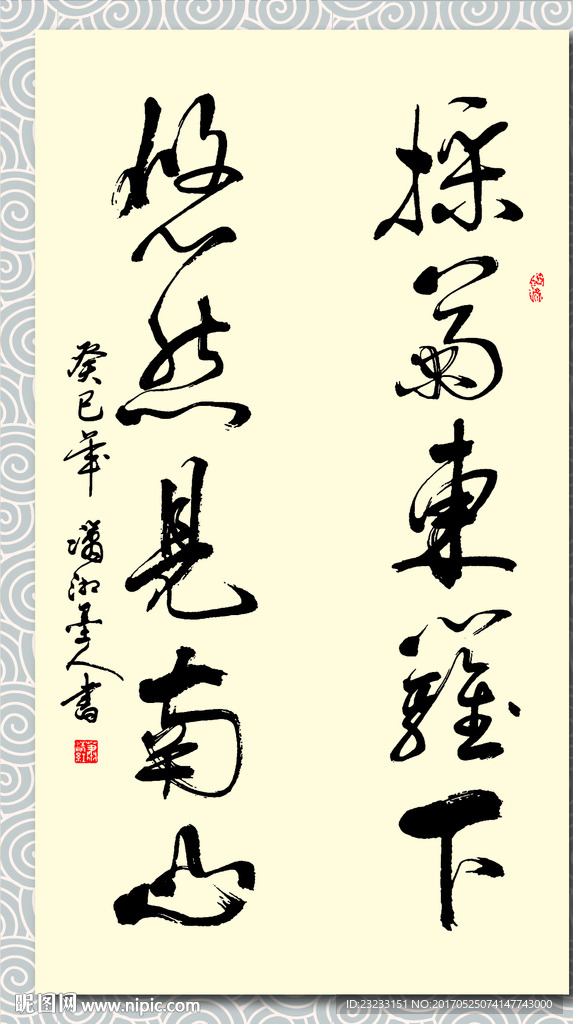 採菊東籬下
悠然見南山
癸巳年 瀟湘墨人書
昵图网 www.nipic.com
ID:23233151 NO:20170525074147743000